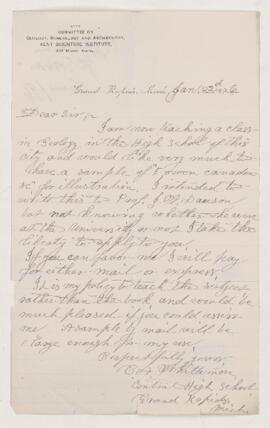 COMMITTEE ON
GEOLOGY, MINERALOGY AND ARCHÆOLOGY,
KENT SCIENTIFIC INSTITUTE,
Grand Rapids, Mich., Jan.
Dear Sir,
I am now teaching a class
in Geology in the High School of this
city and would like very much to
have a sample of Eozoon canadense
&c for illustration. I intended to
write this to Prof. J. W. Dawson,
but not knowing whether he were
at the University or not I take the
liberty to apply to you.
If you can favor me I will pay
for either mail or express.
It is my policy to teach the subject
rather than the book, and would be
much pleased if you could assist
me. A sample by mail will be
large enough for my use.
Respectfully yours,
Central High School
Grand Rapids,
Mich.